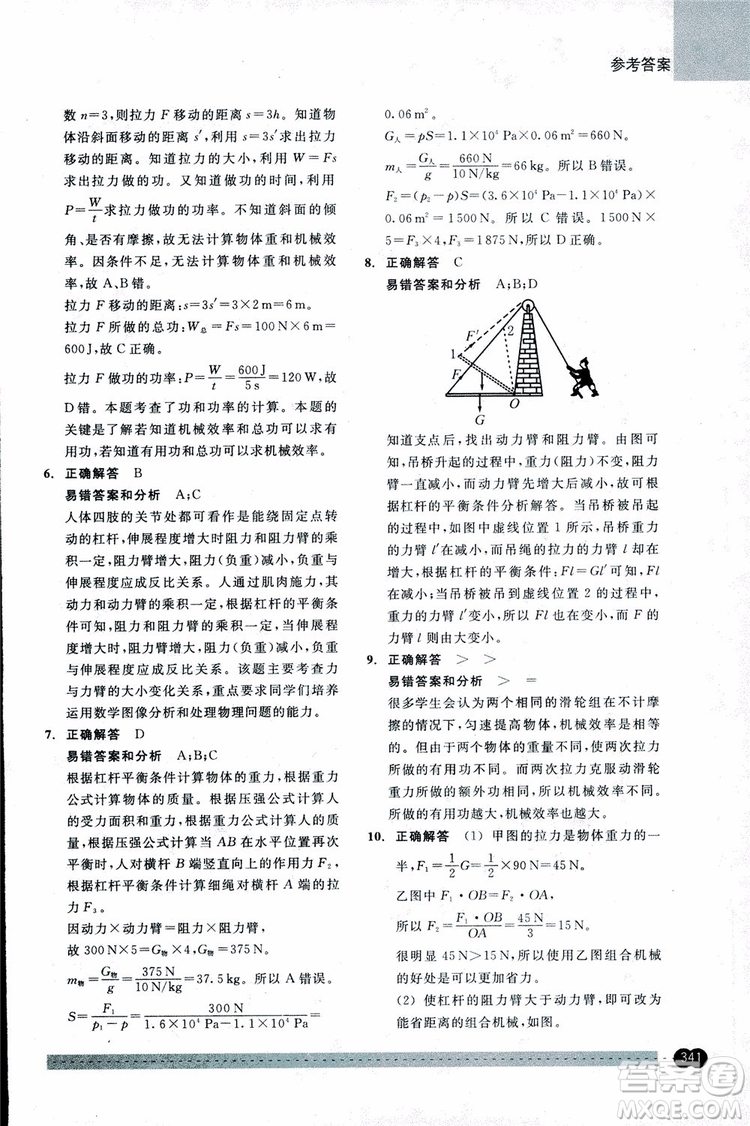 参考答案
数 n=3,则拉力 F 移动的距离 s=3h。知道物
体沿斜面移动的距离 s′,利用 s=3s′求出拉力
F 移动的距离。知道拉力的大小,利用 W=Fs
求出拉力做的功。又知道做功的时间,利用
P=W/t求拉力做功的功率。不知道斜面的倾
角、是否有摩擦,故无法计算物体重和机械效
率。因条件不足,无法计算物体重和机械效
率。故 A、B错。
拉力 F 移动的距离:s=3s′=3×2 m=6 m。
拉力 F 所做的总功:W总=Fs=100 N×6 m=
600 J,故 C 正确。
拉力 F 做功的功率:P=W/t=600 J/5 s=120 W,故
D 错。本题考查了功和功率的计算。本题的
关键是了解若知道机械效率和总功可以求有
用功,若知道有用功和总功可以求机械效率。
6. 正确解答 B
易错答案和分析 A;C
人体四肢的关节处都可看作是能绕固定点转
动的杠杆,伸展程度增大时阻力和阻力臂的乘
积一定,阻力臂增大,阻力(负重)减小,负重与
伸展程度应是反比关系。人通过肌肉施力,其
动力与动力臂的乘积一定,根据杠杆的平衡条
件分析可知,阻力和阻力臂的乘积一定,伸展
程度增大时阻力臂增大,阻力(负重)减小,负重
与伸展程度应是反比关系。该题主要考查力
与力臂的大小变化关系,重点要求同学们培养
运用数学图像分析和处理物理问题的能力。
7. 正确解答 D
易错答案和分析 A;B;C
根据杠杆平衡条件计算物体的重力,根据重力
公式计算物体的质量。根据压强公式计算人
的受力面积,根据压强公式计算人的重力和质
量。根据压强公式计算当 AB 在水平位置再次
平衡时,人对横杆 B 端竖直向上的作用力。根
据杠杆平衡条件计算细绳对横杆 A 端的拉
力 F₃。
因动力×动力臂=阻力×阻力臂,
故 300 N×5=G物×4,G物=375 N。
m物=G物/g=375 N/10 N/kg=37.5 kg。所以 A 错误。
S=F₁/(p₁-p)=300 N/(1.6×10⁴ Pa-1.1×10⁴ Pa)=
0.06 m²。
G人=pS=1.1×10⁴ Pa×0.06 m²=660 N。
m人=G人/g=660 N/10 N/kg=66 kg。所以 B 错误。
F₂=(p₂-p)S=(3.6×10⁴ Pa-1.1×10⁴ Pa)×
0.06 m²=1500 N。所以 C 错误。1500 N
×5=F₃×4,F₃=1875 N,所以 D 正确。
8. 正确解答 C
易错答案和分析 A;B;D
F′
2
1
F
G
O
知道支点后,找出动力臂和阻力臂。由图可
知,吊桥升起的过程中,重力(阻力)不变,阻力
臂一直减小,而动力臂先增大后减小,然后根
据杠杆的平衡条件分析解答。当吊桥被吊起
的过程中,如图中虚线位置 1 所示,吊桥重力
的力臂 l′在减小,而吊绳的拉力的力臂 l 却在
增大,根据杠杆的平衡条件:Fl=Gl′可知,F
在减小;当吊桥被吊到虚线位置 2 的过程中,
重力的力臂 l′变小,所以 Fl 变小,而 F 的力
臂 l 变小,所以 F 一直减小。
9. 正确解答 > >
易错答案和分析 > =
很多学生会认为两个相同的滑轮组在不计摩
擦的情况下,匀速提升物体,机械效率是相等
的。但由于两个物体的重力不等,所以两次拉力
所做的有用功不等。而两次拉力克服动滑轮
重所做的额外功相等。所以机械效率不等。
所做的有用功越大,机械效率越大。
10. 正确解答 (1) 甲图的拉力是物体重力的一
半,F₁=1/2G=1/2×90 N=45 N。
乙图中 F₁·OB=F₂·OA,
所以 F₂=F₁·OB/OA=45 N/3=15 N。
很明显 45 N>15 N。所以使用乙图组合机械
的好处是可以更加省力。
(2) 使杠杆的阻力臂大于动力臂,即可改为
能省距离的组合机械,如图。
341
答案圈
MXQE.COM